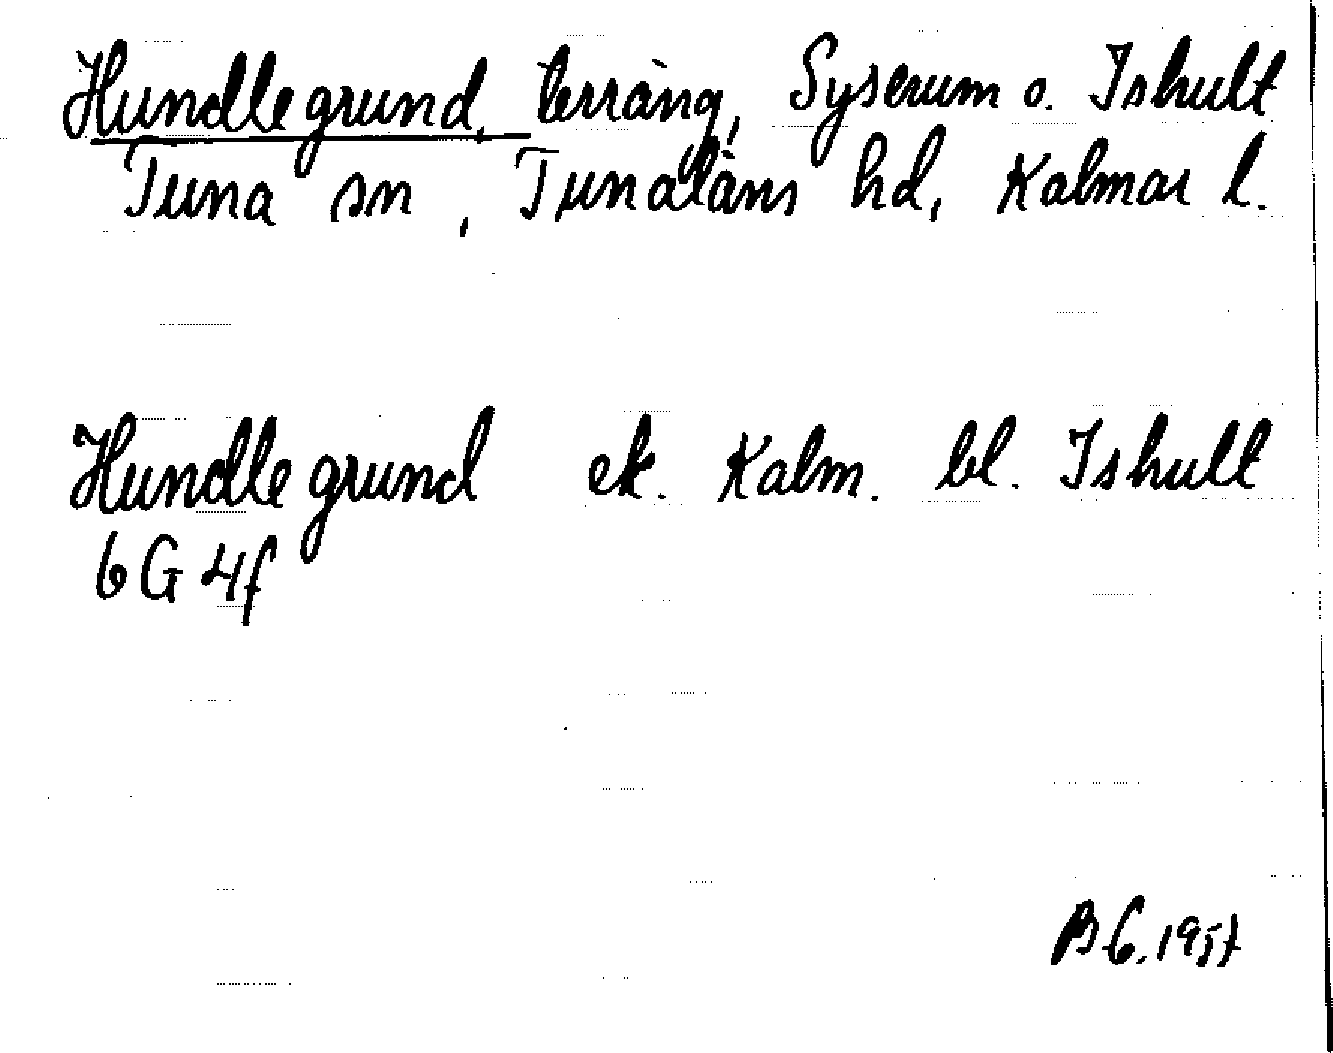 Hundlegrund, terräng, Syserum o. Ishult
Tuna sn, Tunaläns hd, Kalmar l.
Hundlegrund ek. Kalm. bl. Ishult
6 G 4f
1957